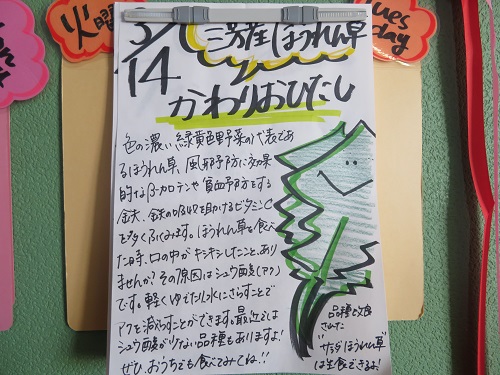 火曜
Tues
day
3/14
三芳産ほうれん草
かわりおひたし
色の濃い緑黄色野菜の代表であ
るほうれん草。風邪予防に効果
的なβ-カロテンや貧血予防をする
鉄、鉄の吸収を助けるビタミンC
を多くふくみます。ほうれん草を食べ
た時、口の中がキシキシしたこと、あり
ませんか？その原因はシュウ酸(アク)
です。軽くゆでたり水にさらすことで
アクを減らすことができます。最近では
シュウ酸が少ない品種もありますよ！
ぜひ、おうちでも食べてみてね!!
品種改良
された
"サラダほうれん草"
は生食できるよ！